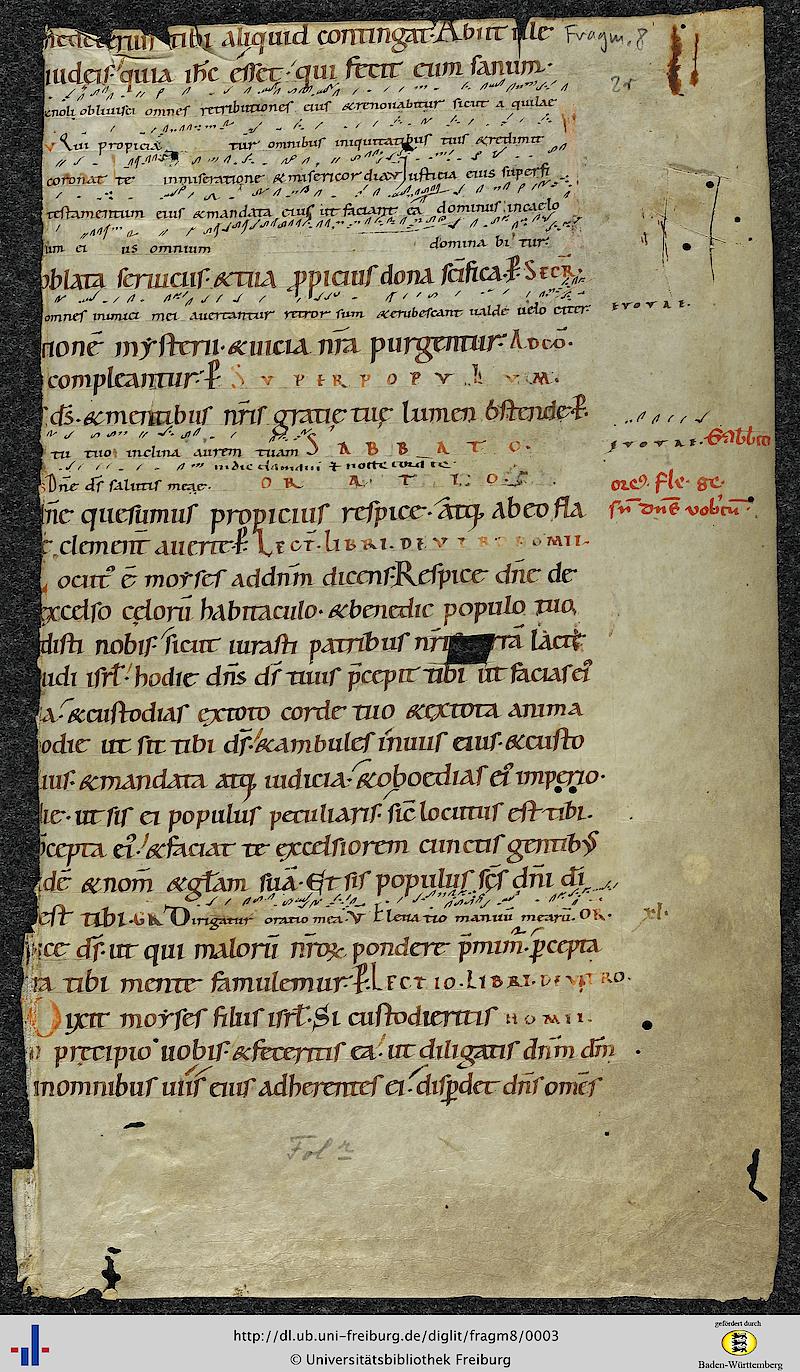 tibi aliquid contingat. Abiit ille Fragm. 8
iudeis quia ihc esset qui fecit eum sanum. 2r
enoli obliuisci omnes retributiones eius & renouabitur sicut aquilae
V Qui propiciae tur omnibus iniquitatibus tuis & redimit
coronat te inmiseratione & misericordia V Iusticia eius superfi
testamentum eius & mandata eius ut faciant ea dominus incaelo
um ei us omnium domina bi tur.
oblata seruicius. & tua ppicius dona scifica. P. Secr̄.
omnes inimici mei auertantur retror sum & erubescant ualde uelo citer. EVOVAE.
tionē mysterii. & uicia nr̄a purgentur. Ad cō.
compleantur. P. SVPER POPVLVM.
ds̄. & mentibus nr̄is gratię tuę lumen ostende. P.
tu tuo inclina aurem tuam SABBATO. EVOVAE. Sabbto
indie clamaui & nocte coram te
Dn̄e ds̄ salutis meae. ORATIO. oreꝰ. fle. ge.
n̄e quesumus propicius respice. atq, abeo fla sn̄ dn̄s uobcū.
clement auerte. P. LECT. LIBRI. DEVTRONOMII.
ocut̄ ē moyses addn̄m dicens. Respice dn̄e de
excelso cęlorū habitaculo. & benedic populo tuo,
disti nobis. sicut iurasti patribus nr̄is rā lacte
udi isrl̄. hodie dn̄s ds̄ tuus p̄cepit tibi ut facias ei
a. & custodias extoto corde tuo & extota anima
odie ut sit tibi ds̄. & ambules inuiis eius. & custo
ius. & mandata atq, iudicia. & oboedias ei imperio.
ie. ut sis ei populus peculiaris. sic locutus est tibi.
p̄cepta ei. & faciat te excelsiorem cunctis gentibꝰ
dē & nom̄ & gl̄am suā. Et sis populus sc̄s dn̄i di
est tibi. GR Dirigatur oratio mea. V Eleuatio manuū mearū. OR. xl.
ice ds̄. ut qui malorū nr̄oꝝ pondere p̄mim̄. p̄cepta
ta tibi mente famulemur. P. LECTIO. LIBRI. DEVTRO.
Dixit moyses filiis isrl̄. Si custodieritis NOMII.
precipio uobis. & feceritis ea. ut diligatis dn̄m dm̄
inomnibus uiis eius adherentes ei. disp̄det dn̄s omēs
Fol r
http://dl.ub.uni-freiburg.de/diglit/fragm8/0003
© Universitätsbibliothek Freiburg
gefördert durch
Baden-Württemberg